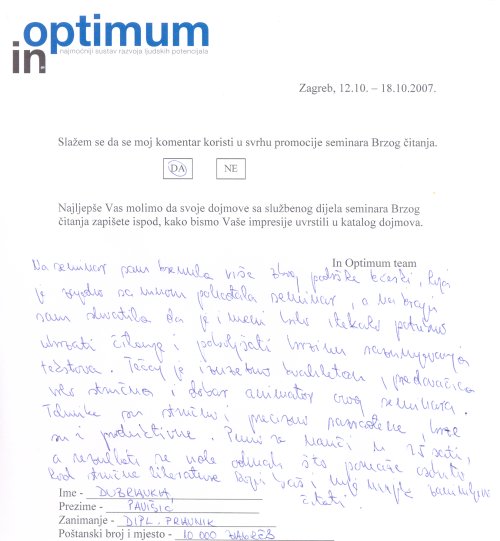 in optimum
najmoćniji sustav razvoja ljudskih potencijala
Zagreb, 12.10. – 18.10.2007.
Slažem se da se moj komentar koristi u svrhu promocije seminara Brzog čitanja.
DA NE
Najljepše Vas molimo da svoje dojmove sa službenog dijela seminara Brzog
čitanja zapišete ispod, kako bismo Vaše impresije uvrstili u katalog dojmova.
In Optimum team
Na seminar sam krenula više zbog podrške kćerki, koja
je zajedno sa mnom pohađala seminar, a na kraju
sam shvatila da je i meni bilo itekako potrebno
ubrzati čitanje i poboljšati brzinu razumijevanja
tekstova. Tečaj je izuzetno kvalitetan, predavačica
vrlo stručna i dobar animator ovog seminara.
Tehnike su stručno i precizno razrađene, brze
su i produktivne. Puno se nauči u 25 sati,
a rezultati se vide odmah što pomaže osobito
kod stručne literature koju baš i nije uvijek zanimljivo
čitati.
Ime - DUBRAVKA
Prezime - PAVIŠIĆ
Zanimanje - DIPL. PRAVNIK
Poštanski broj i mjesto - 10 000 ZAGREB